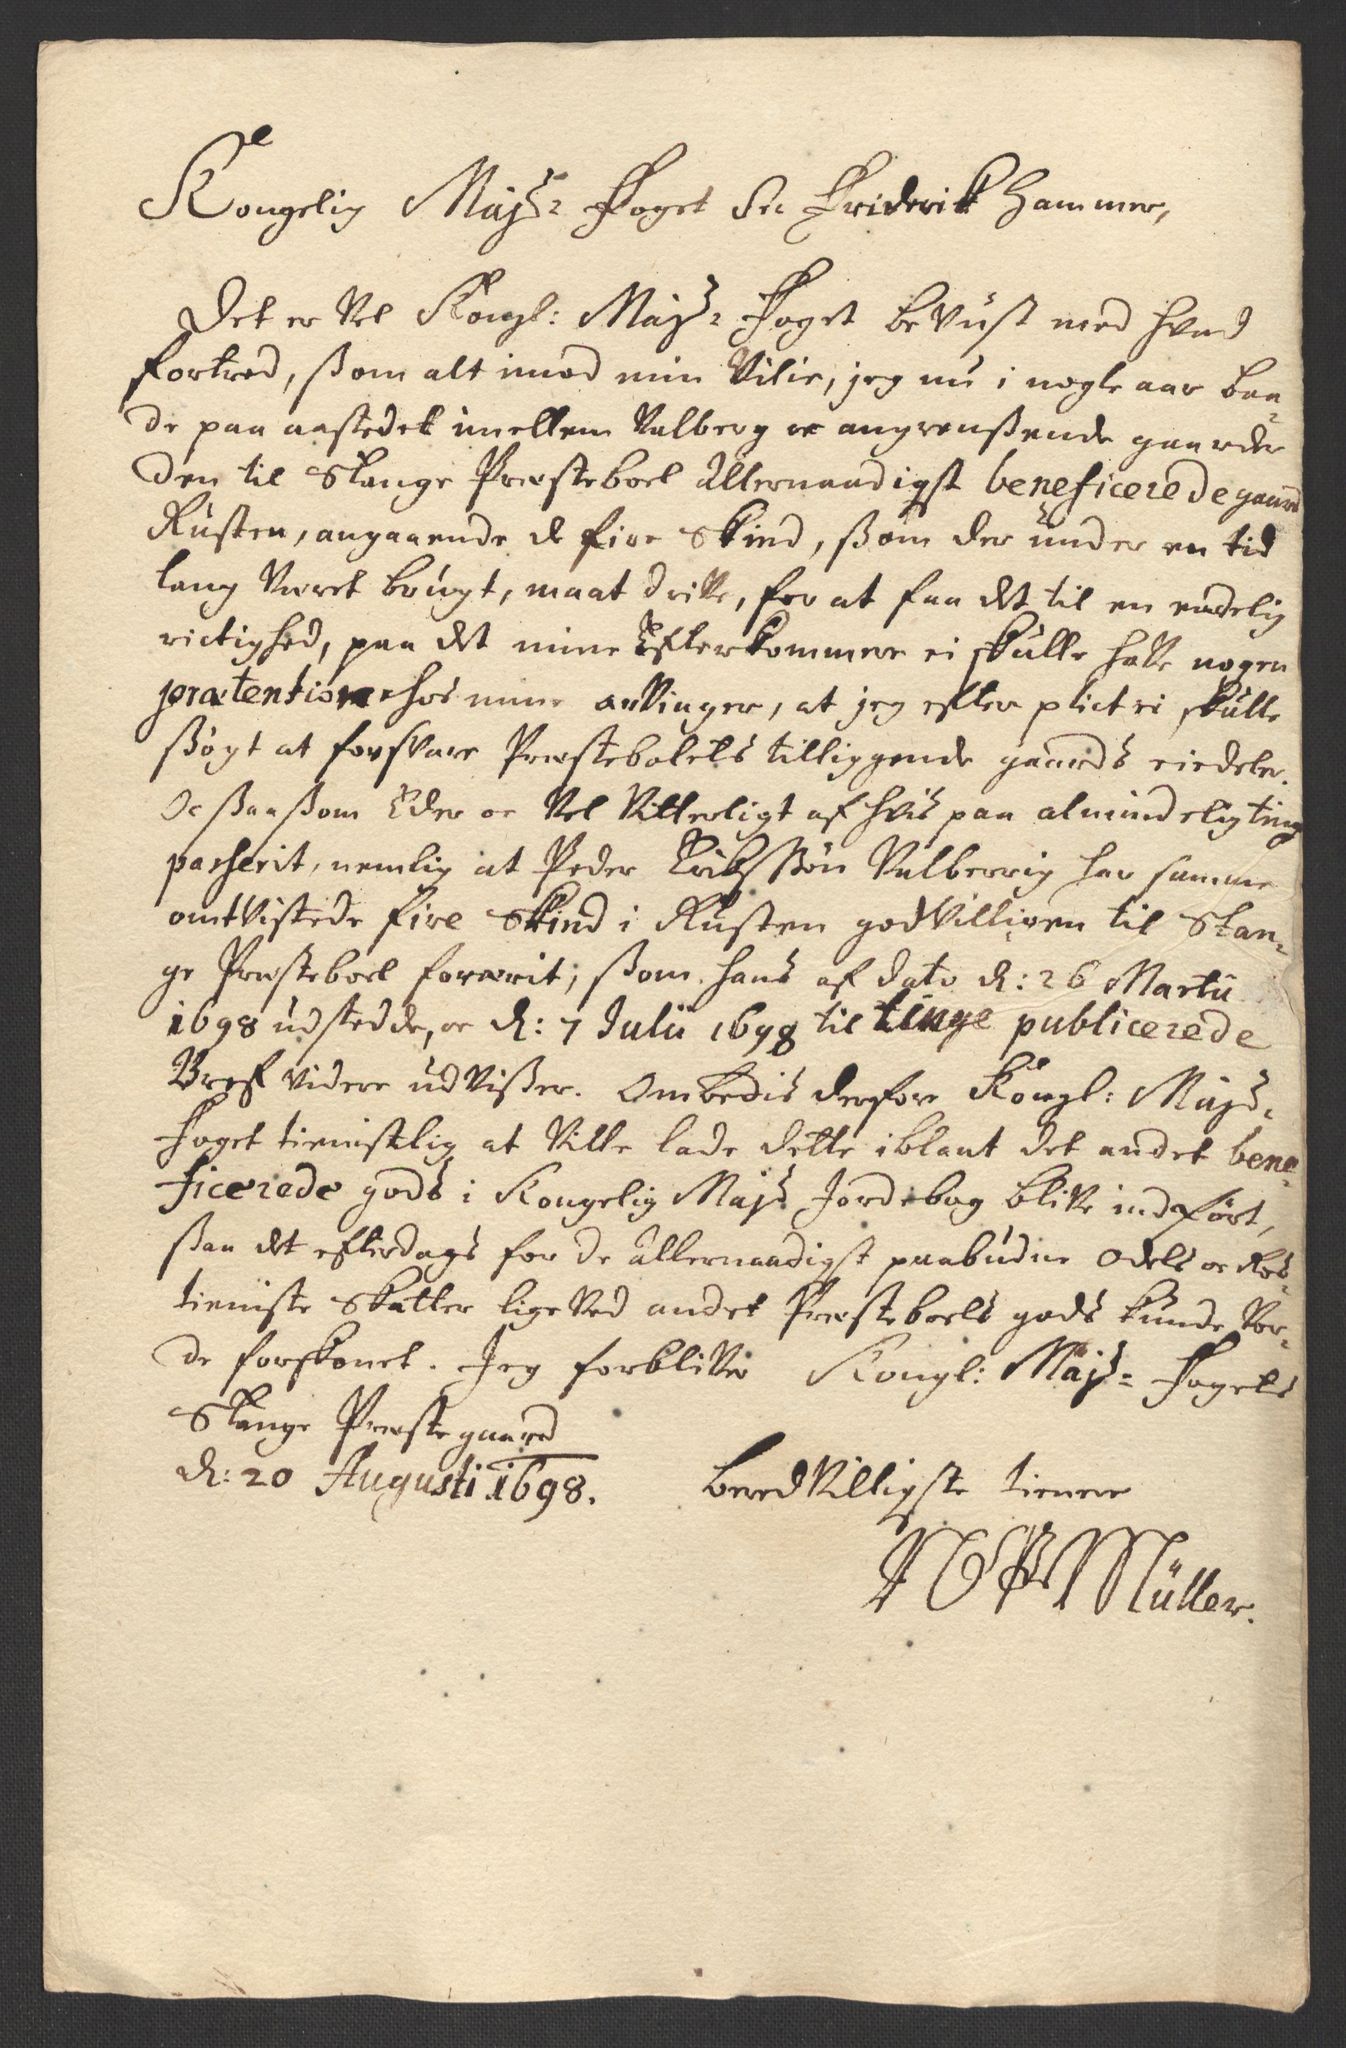 Kongelig Majs: Foget Sr Friderik Hammer,
Det er Vel Kongl: Majs: Foget beVust med hvad
fortred, ßom alt imod min Vilie, jeg nu i nogle aar baa-
de paa aastedet imellem Valberg oc angrenßende gaarder
den til Stange Præsteboel Allernaadigst beneficerede gaard
Rusten, angaaende de fire Skind, ßom der under en tid
lang Været brugt, maat driVe, for at faa det til en endelig
rictighed, paa det mine Efterkommere ei skulle haVe nogen
prætention hos mine arVinger, at jeg efter plict ei skulle
ßøgt at forsVare Præstebolets tilliggende gaards eiedeler.
Oc ßaaßom Eder er Vel Vitterligt af hvis paa almindelig ting
passerit, nemlig at Peder Erikßøn Valberrig har samme
omtVistede fire Skind i Rusten godVilligen til Stan-
ge Præsteboel foræerit, ßom hans af dato d: 26 Martii
1698 udstedde, oc d: 7 Julii 1698 til tinge publicerede
Bref videre udVißer. Ombedis derfore Kongl: Majs:
Foget tienistlig at Ville lade dette iblant det andet bene-
ficerede gods i Kongelig Majs Jordebog bliVe indført,
ßaa det efterdags for de allernaadigst paabudne Odels oc Ros-
tieniste Skatter lige Ved andet Præsteboels gods kunde Vor-
de forskonet. Jeg forbliVer Kongl: Majs: Fogets
Stange Præstegaard
d: 20 Augusti 1698.
beredVilligste tienere
Müller.